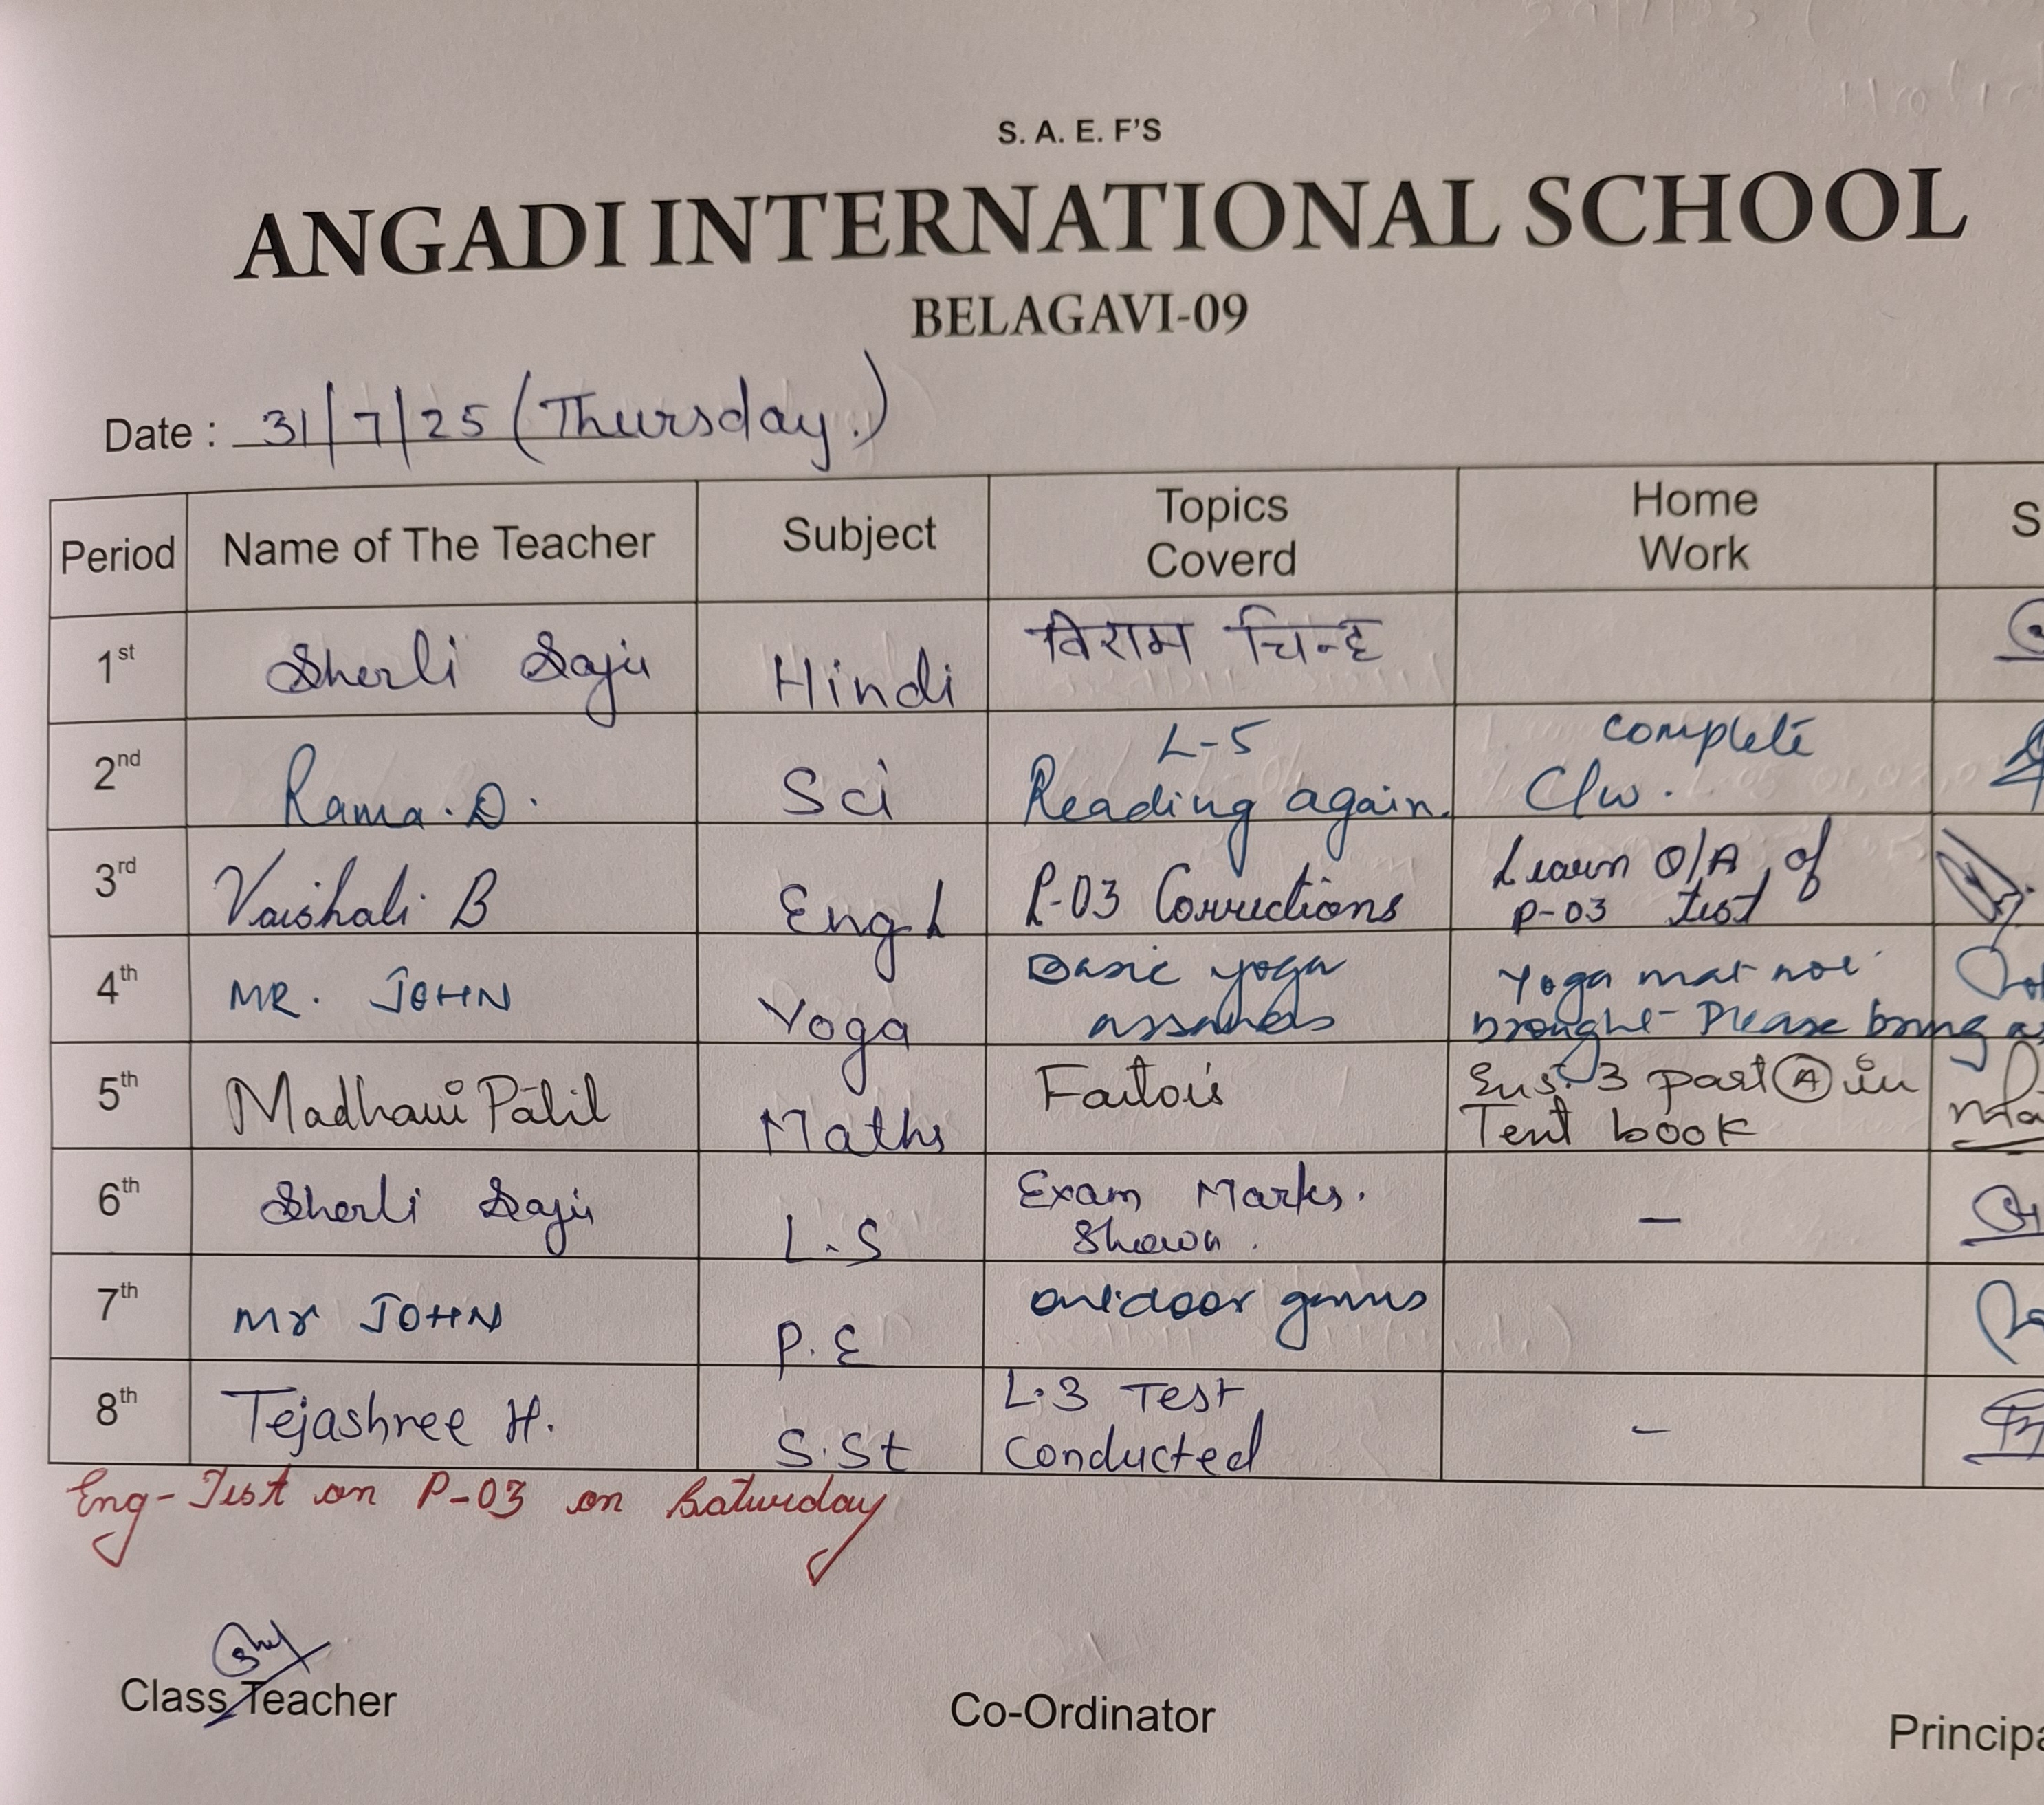 S. A. E. F'S
ANGADI INTERNATIONAL SCHOOL
BELAGAVI-09
Date : 31/7/25 (Thursday.)
Period Name of The Teacher Subject Topics Coverd Home Work S
1st Sherli Saju Hindi विराम चिन्ह
2nd Rama. D. Sci L-5 Reading again. complete C/w.
3rd Vaishali B Engl P-03 Corrections Learn Q/A of P-03 test
4th MR. JOHN Yoga Basic yoga assanas Yoga mat not brought - Please bring
5th Madhavi Patil Maths Factors 3 part A in Text book
6th Sherli Saju L.S Exam Marks. Shown. —
7th Mr JOHN P.E outdoor games —
8th Tejashree H. S.St L.3 Test Conducted -
Eng - Test on P-03 on Saturday
Class Teacher Co-Ordinator Principa